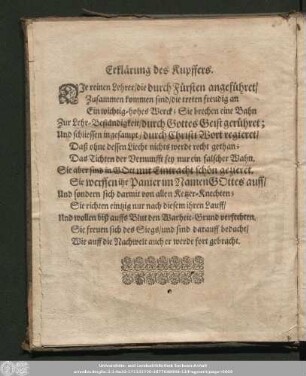 Erklärung des Kupffers.
DIe reinen Lehrer/die durch Fürsten angeführet/
Zusammen kommen sind/die treten freudig an
Ein wichtig-hohes Werck: Sie brechen eine Bahn
Zur Lehr-Beständigkeit/durch Gottes Geist gerühret;
Und schliessen ingesampt/durch Christi Wort regieret/
Daß ohne dessen Liecht nichts werde recht gethan:
Das Tichten der Vernunfft sey nur ein falscher Wahn.
Sie aber sind in GOtt mit Eintracht schön gezieret.
Sie werffen ihr Panier im Namen GOttes auff/
Und sondern sich darmit von allen Ketzer-Knechten:
Sie richten eintzig nur nach diesem ihren Lauff/
Und wollen biß auffs Blut den Warheit-Grund verfechten.
Sie freuen sich des Siegs/und sind darauff bedacht/
Wie auff die Nachwelt auch er werde fort gebracht.